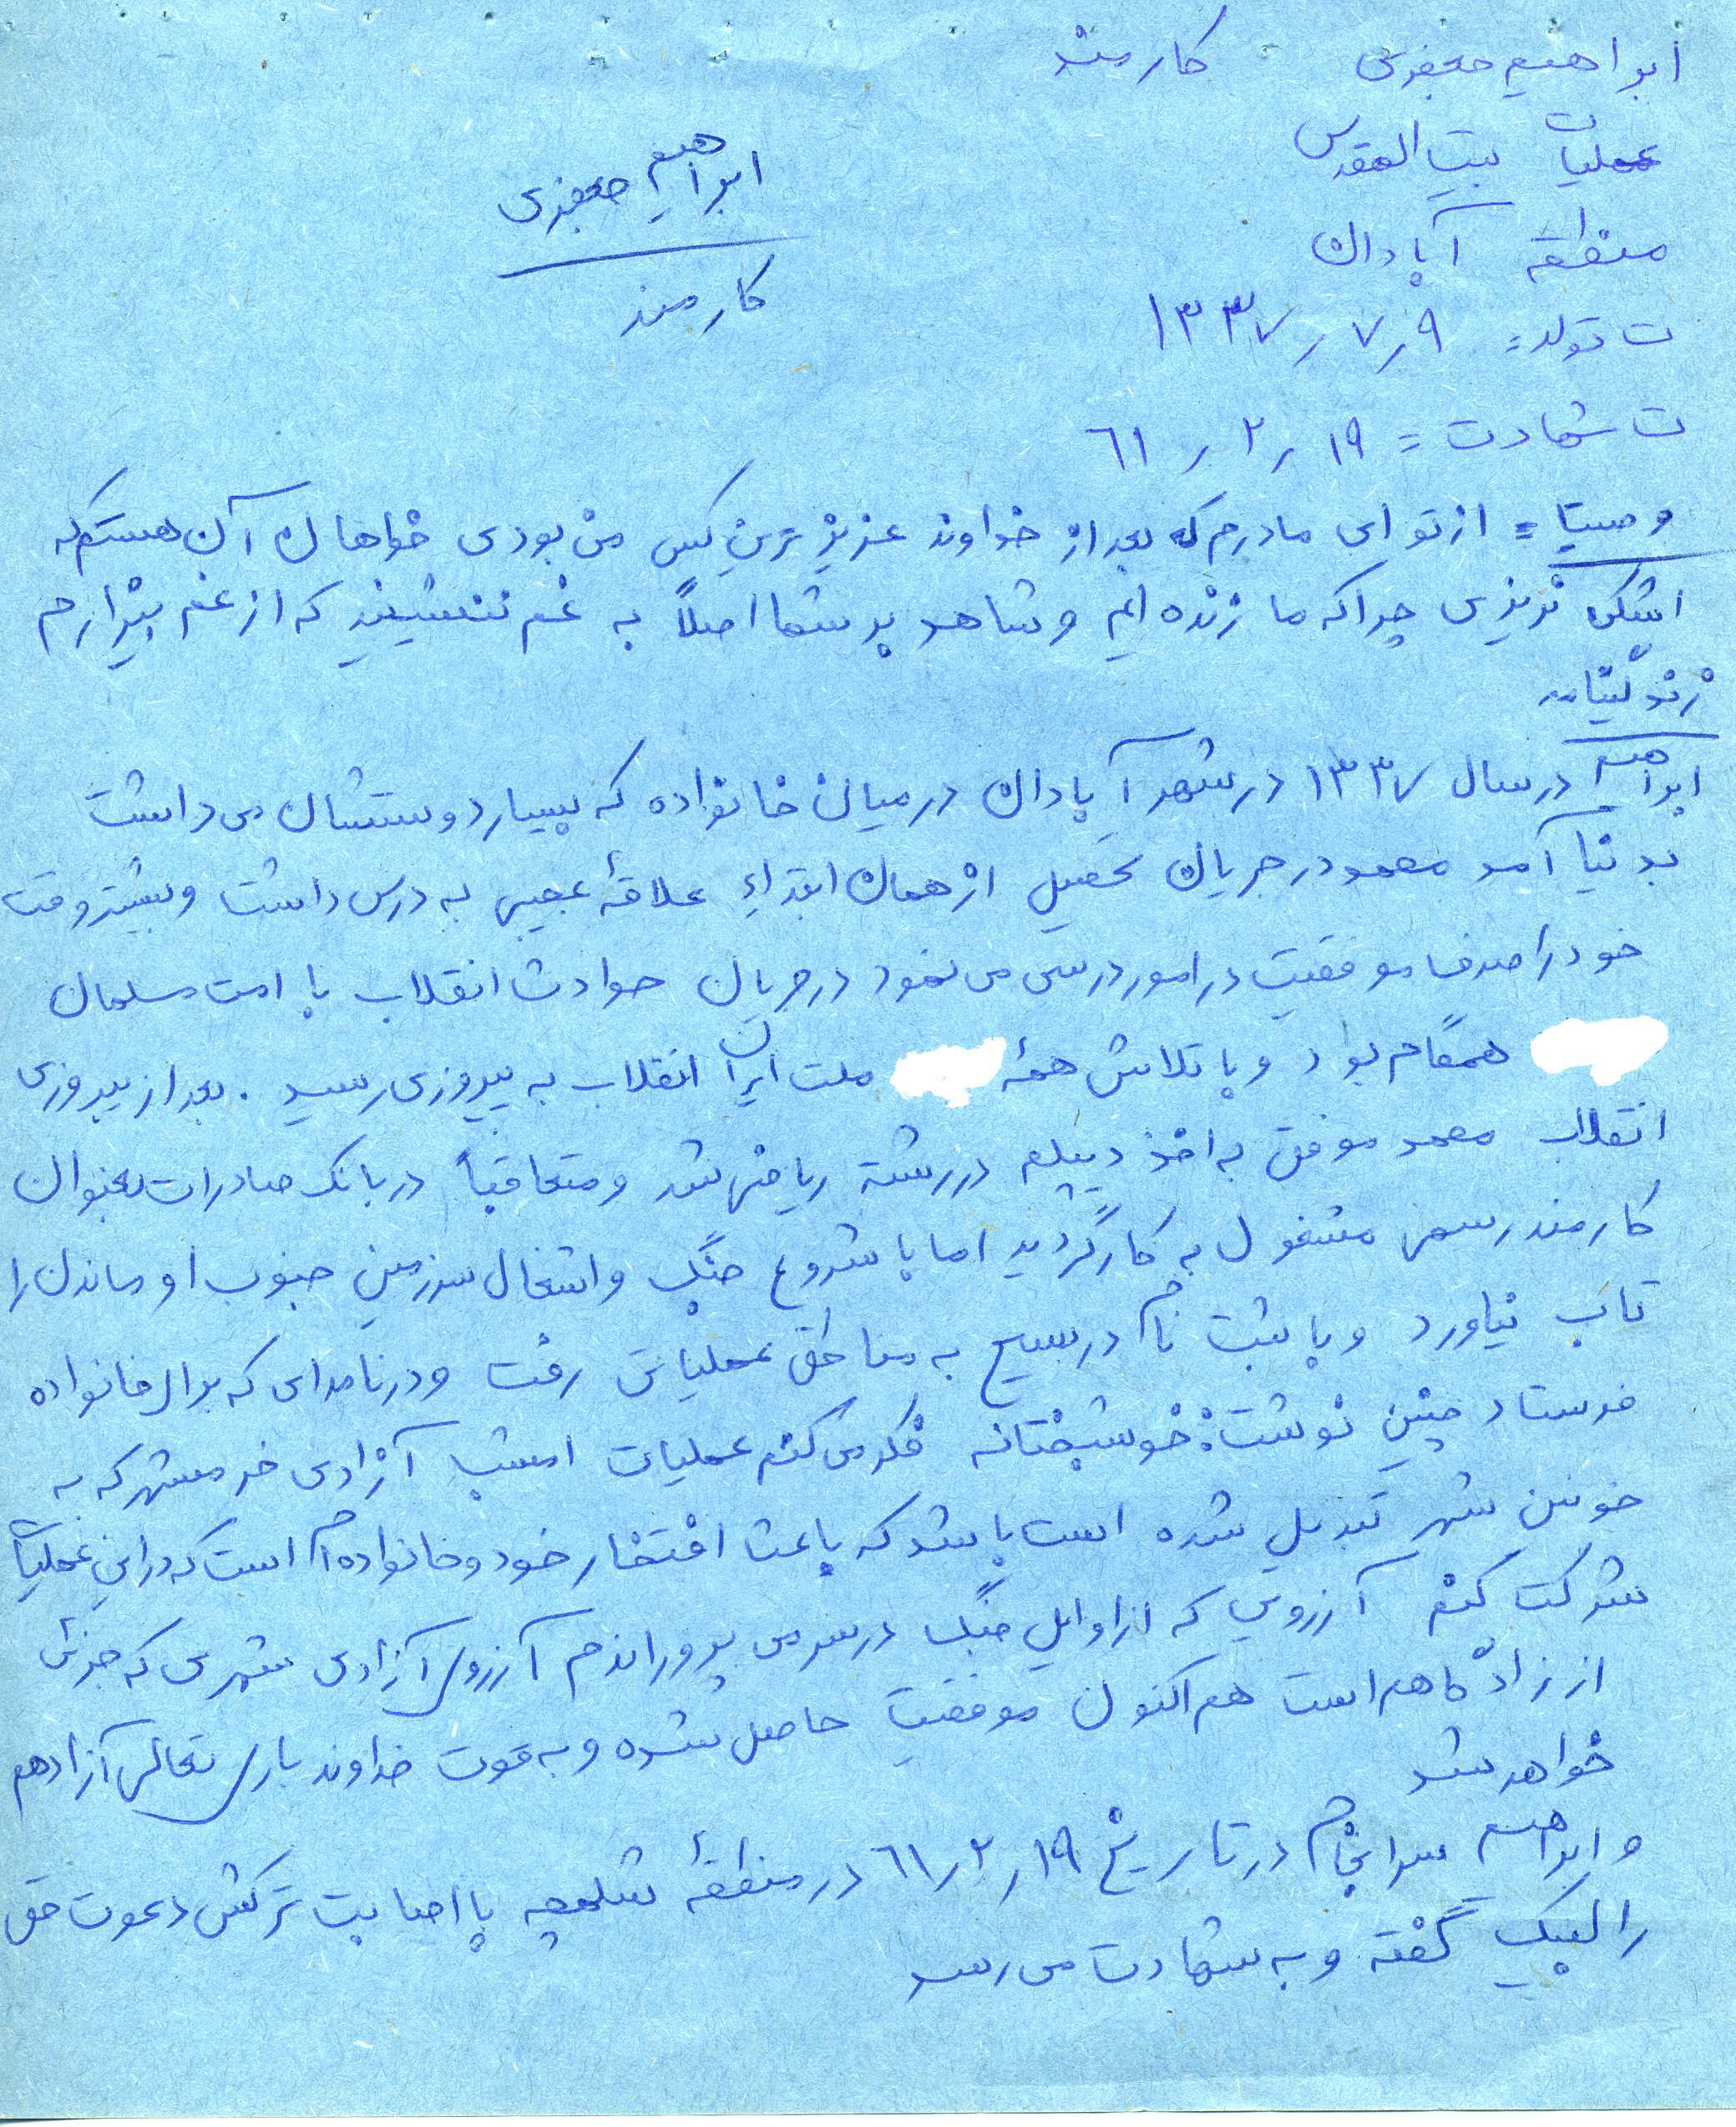 ابراهیم جعفری کارمند
عملیات بیت المقدس
منطقه آبادان
ت تولد = ۱۳۳۷٫۷٫۹
ت شهادت = ۶۱٫۲٫۱۹
ابراهیم جعفری
کارمند
وصیت = از تو ای مادرم که بعد از خداوند عزیزترین کس من بودی خواهان آن هستم که
اشک نریزی چرا که ما زنده ایم و شاهد بر شما اصلاً به غم ننشینید که از غم بیزارم
زندگینامه
ابراهیم در سال ۱۳۳۷ در شهر آبادان در میان خانواده که بسیار دوستشان می داشت
بدنیا آمد محمد در جریان تحصیل از همان ابتداء علاقهٔ عجیبی به درس داشت و بیشتر وقت
خود را صرف موفقیت در امور درسی می نمود در جریان حوادث انقلاب با امت مسلمان
همگام بود و با تلاش همهٔ ملت ایران انقلاب به پیروزی رسید . بعد از پیروزی
انقلاب محمد موفق به اخذ دیپلم در رشته ریاضی شد و متعاقباً در بانک صادرات بعنوان
کارمند رسمی مشغول به کار گردید اما با شروع جنگ و اشغال سرزمین جنوب او ماندن را
تاب نیاورد و با ثبت نام در بسیج به مناطق عملیاتی رفت و در نامه ای که برای خانواده
فرستاد چنین نوشت: خوشبختانه فکر می کنم عملیات امشب آزادی خرمشهر که به
خونین شهر تبدیل شده است باشد که باعث افتخار خود و خانواده ام است که در این عملیات
شرکت کنم آرزویی که از اوایل جنگ در سر می پروراندم آرزوی آزادی شهری که جزئی
از زادگاهم است هم اکنون موفقیت حاصل شده و به قوت خداوند باری تعالی آزاد هم
خواهد شد
و ابراهیم سرانجام در تاریخ ۶۱٫۲٫۱۹ در منطقهٔ شلمچه با اصابت ترکش دعوت حق
را لبیک گفته و به شهادت می رسد